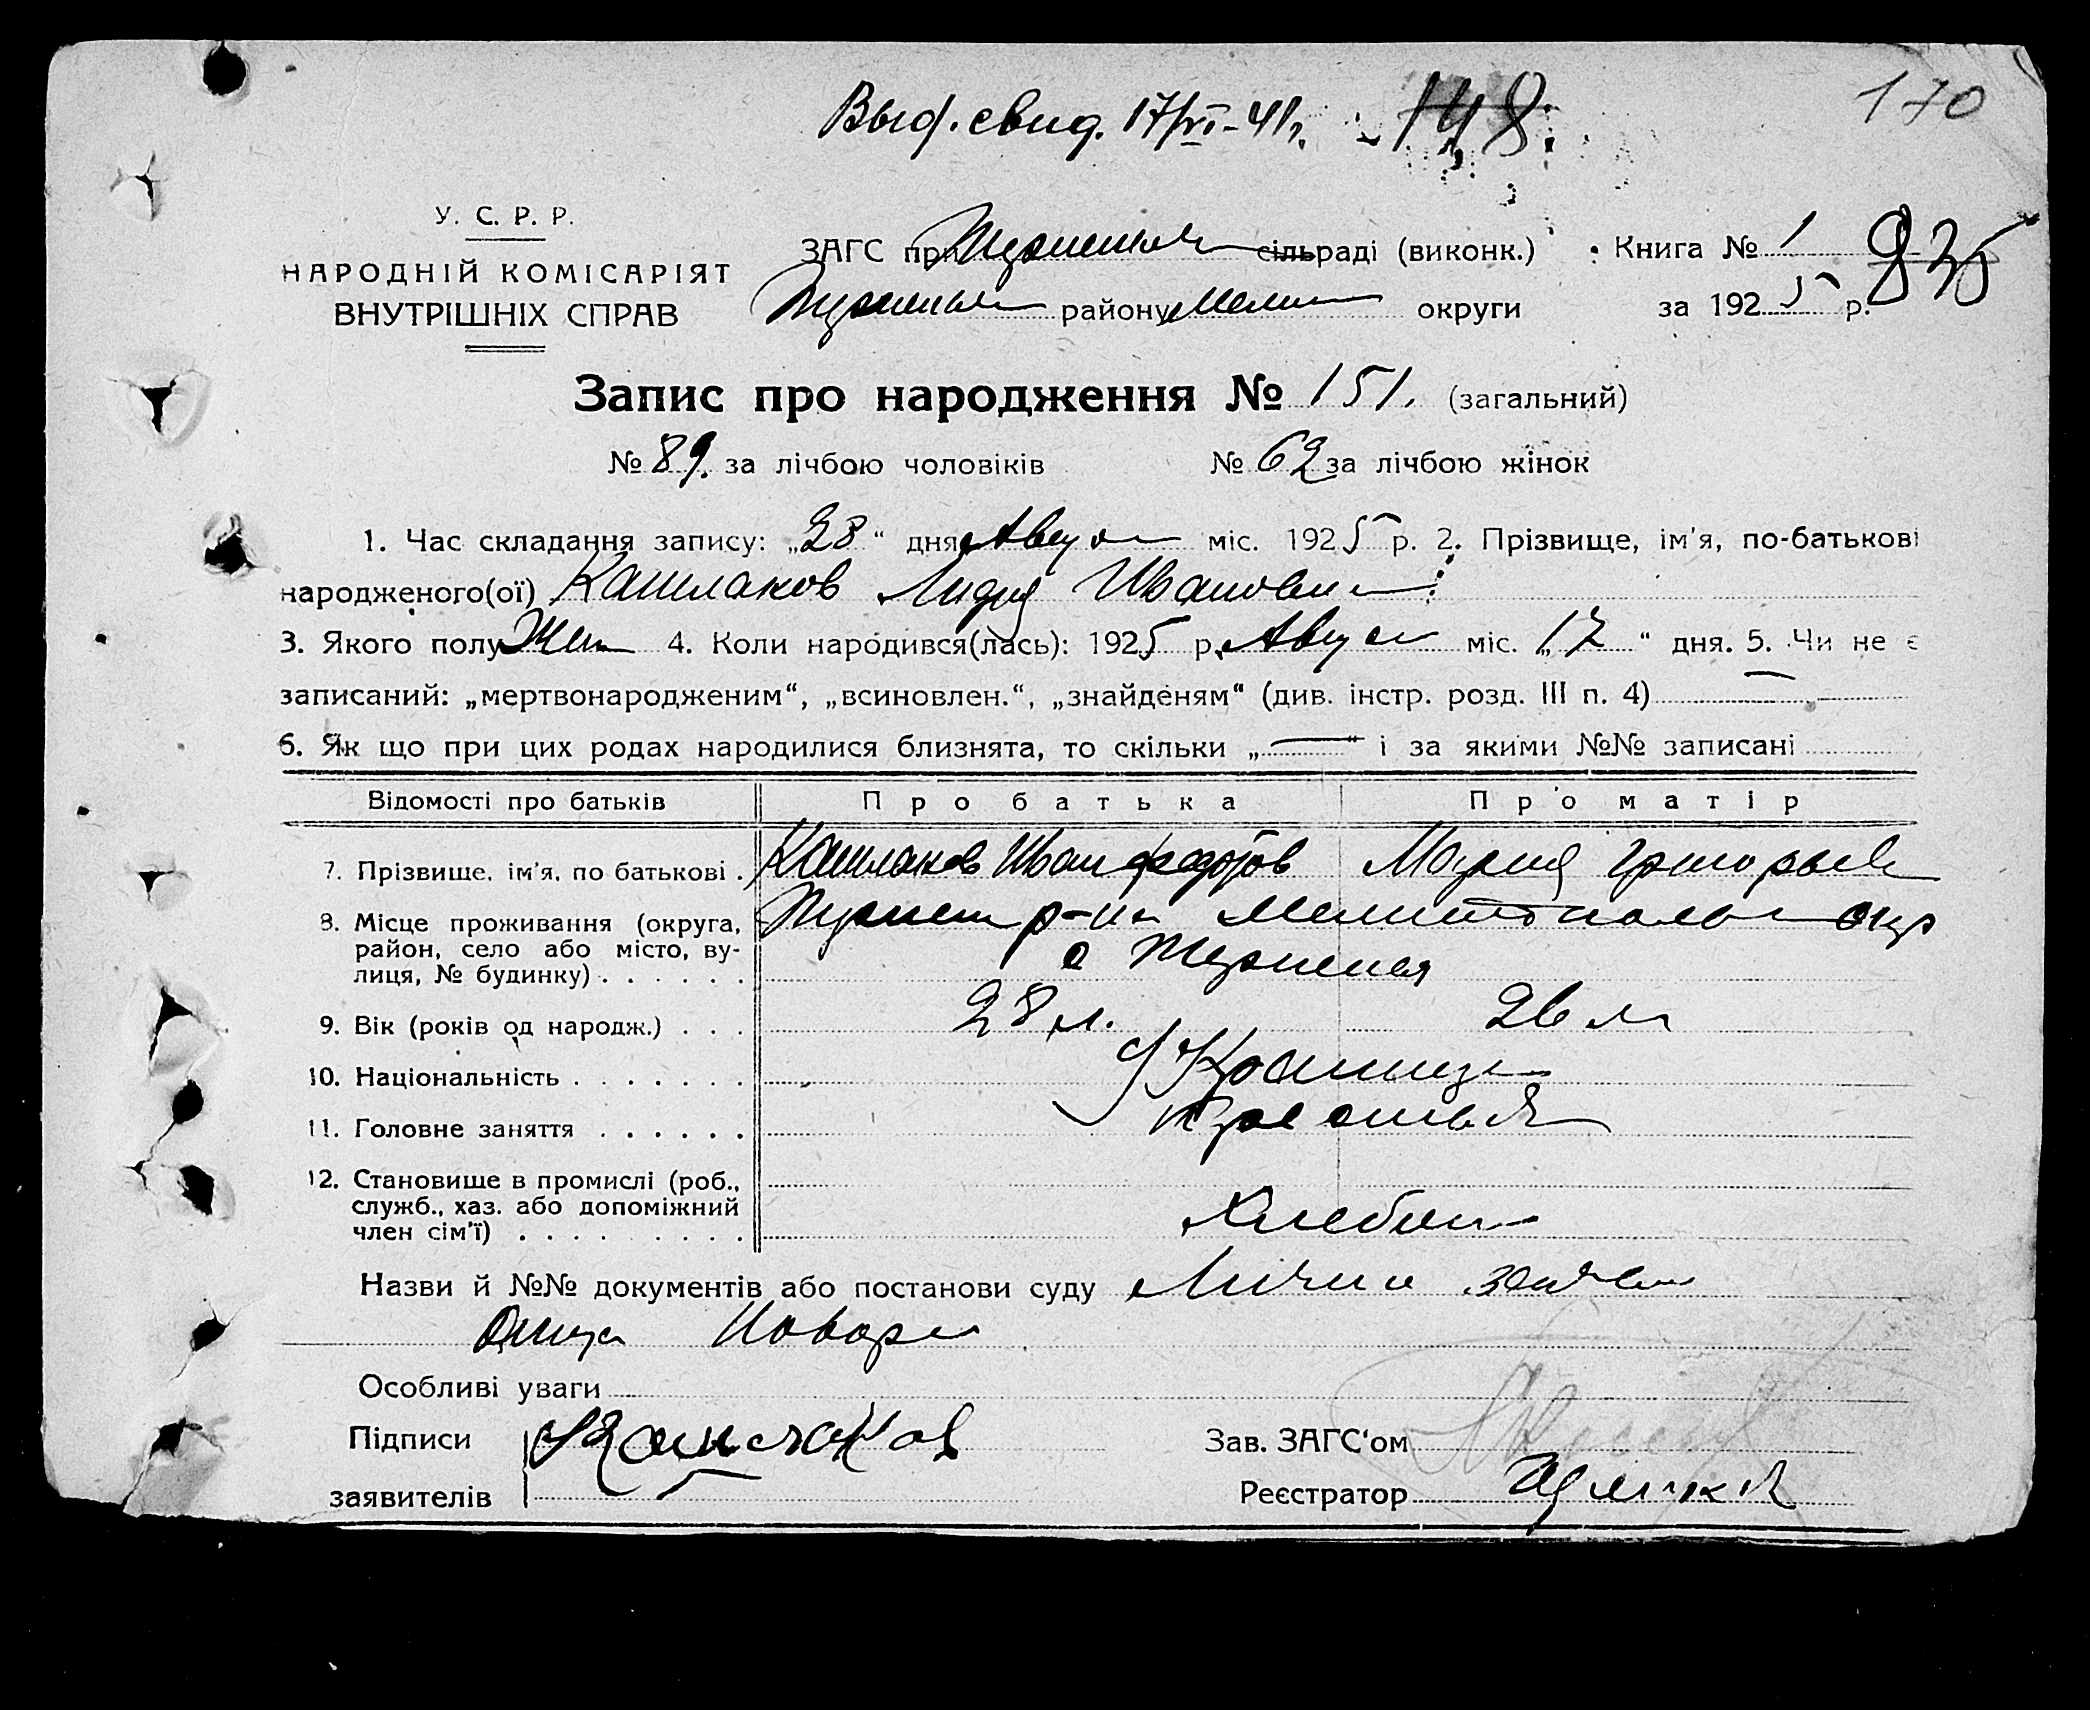 Выд. свид. 17/VI-41г. 148. 170
У. С. Р. Р.
НАРОДНІЙ КОМІСАРІЯТ
ВНУТРІШНІХ СПРАВ
ЗАГС при сільраді (виконк.) Книга № 1 835
району Мели округи за 1925 р.
Запис про народження № 151. (загальний)
№ 89. за лічбою чоловіків № 62 за лічбою жінок
1. Час складання запису: „28“ дня Август міс. 1925 р. 2. Прізвище, ім'я, по-батькові
народженого(ої) Кашлаков Лидия Ивановн
3. Якого полу Жен 4. Коли народився(лась): 1925 р. Август міс. „17“ дня. 5. Чи не є
записаний: „мертвонародженим“, „всиновлен.“, „знайденям“ (див. інстр. розд. III п. 4) —
6. Як що при цих родах народилися близнята, то скільки „—“ і за якими №№ записані
Відомості про батьків Про батька Про матір
7. Прізвище, ім'я, по батькові . Кашлаков Иван Федоров Мария Григорьев
8. Місце проживання (округа, р-н Мелитопольск окр
район, село або місто, ву- с
лиця, № будинку) . . . . . .
9. Вік (років од народж.) . . . 28 л. 26 л
10. Національність . . . . . . . Украинцы
11. Головне заняття . . . . . . Крестьян
12. Становище в промислі (роб.,
служб., хаз. або допоміжний Хлебоп
член сім'ї) . . . . . . . . .
Назви й №№ документів або постанови суду Лично
Особливі уваги
Підписи Кашлаков Зав. ЗАГС'ом
заявителів Реєстратор